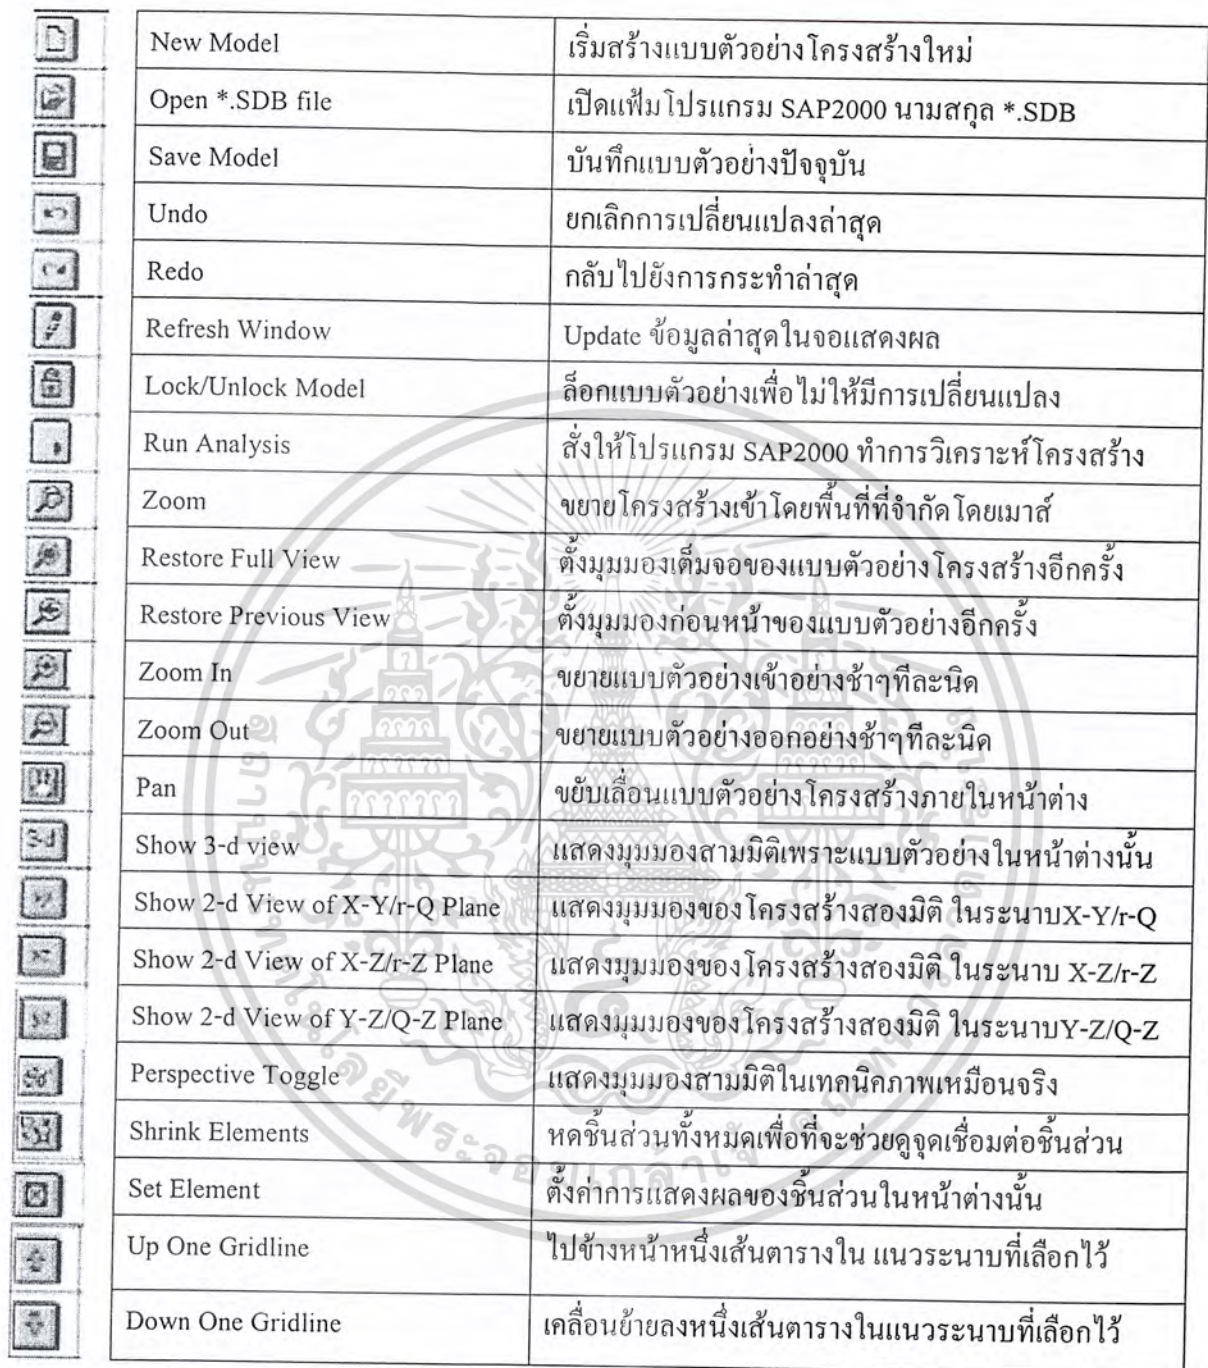 New Model เริ่มสร้างแบบตัวอย่างโครงสร้างใหม่
Open *.SDB file เปิดแฟ้มโปรแกรม SAP2000 นามสกุล *.SDB
Save Model บันทึกแบบตัวอย่างปัจจุบัน
Undo ยกเลิกการเปลี่ยนแปลงล่าสุด
Redo กลับไปยังการกระทำล่าสุด
Refresh Window Update ข้อมูลล่าสุดในจอแสดงผล
Lock/Unlock Model ล็อกแบบตัวอย่างเพื่อไม่ให้มีการเปลี่ยนแปลง
Run Analysis สั่งให้โปรแกรม SAP2000 ทำการวิเคราะห์โครงสร้าง
Zoom ขยายโครงสร้างเข้าโดยพื้นที่ที่จำกัดโดยเมาส์
Restore Full View ตั้งมุมมองเต็มจอของแบบตัวอย่างโครงสร้างอีกครั้ง
Restore Previous View ตั้งมุมมองก่อนหน้าของแบบตัวอย่างอีกครั้ง
Zoom In ขยายแบบตัวอย่างเข้าอย่างช้าๆทีละนิด
Zoom Out ขยายแบบตัวอย่างออกอย่างช้าๆทีละนิด
Pan ขยับเลื่อนแบบตัวอย่างโครงสร้างภายในหน้าต่าง
3-d Show 3-d view แสดงมุมมองสามมิติเพราะแบบตัวอย่างในหน้าต่างนั้น
Show 2-d View of X-Y/r-Q Plane แสดงมุมมองของโครงสร้างสองมิติ ในระนาบX-Y/r-Q
Show 2-d View of X-Z/r-Z Plane แสดงมุมมองของโครงสร้างสองมิติ ในระนาบ X-Z/r-Z
Show 2-d View of Y-Z/Q-Z Plane แสดงมุมมองของโครงสร้างสองมิติ ในระนาบY-Z/Q-Z
Perspective Toggle แสดงมุมมองสามมิติในเทคนิคภาพเหมือนจริง
Shrink Elements หดชิ้นส่วนทั้งหมดเพื่อที่จะช่วยดูจุดเชื่อมต่อชิ้นส่วน
Set Element ตั้งค่าการแสดงผลของชิ้นส่วนในหน้าต่างนั้น
Up One Gridline ไปข้างหน้าหนึ่งเส้นตารางใน แนวระนาบที่เลือกไว้
Down One Gridline เคลื่อนย้ายลงหนึ่งเส้นตารางในแนวระนาบที่เลือกไว้